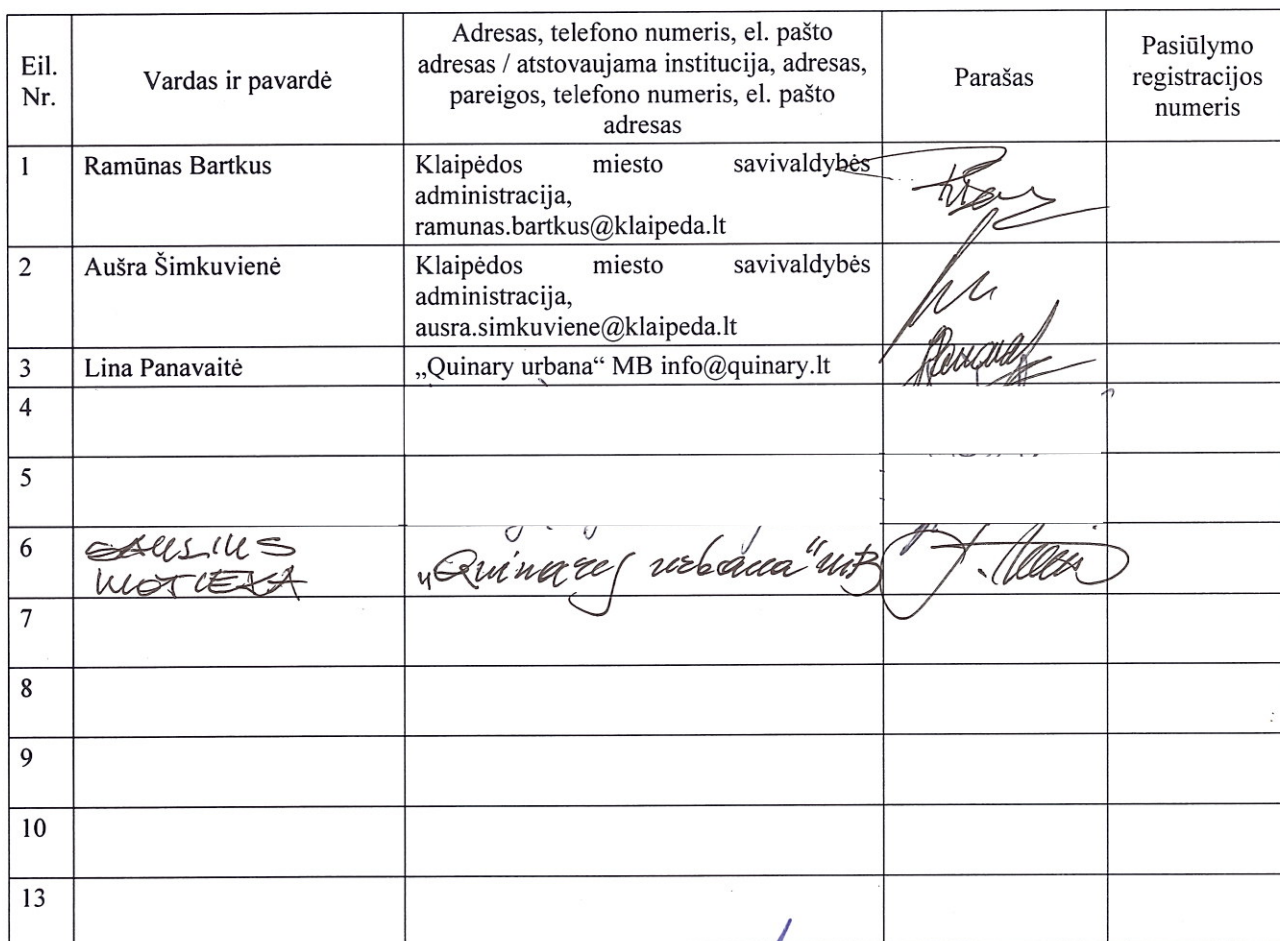 Eil. Nr.
Vardas ir pavardė
Adresas, telefono numeris, el. pašto
adresas / atstovaujama institucija, adresas,
pareigos, telefono numeris, el. pašto
adresas
Parašas
Pasiūlymo
registracijos
numeris
1
Ramūnas Bartkus
Klaipėdos miesto savivaldybės
administracija,
ramunas.bartkus@klaipeda.lt
2
Aušra Šimkuvienė
Klaipėdos miesto savivaldybės
administracija,
ausra.simkuviene@klaipeda.lt
3
Lina Panavaitė
„Quinary urbana“ MB info@quinary.lt
4
5
6
MOTIEKA
„Quinary urbana“ MB
7
8
9
10
13